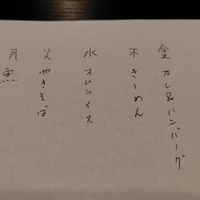 月 魚
火 やきそば
水 オムライス
木 きしめん
金 カレ&ハンバーグ